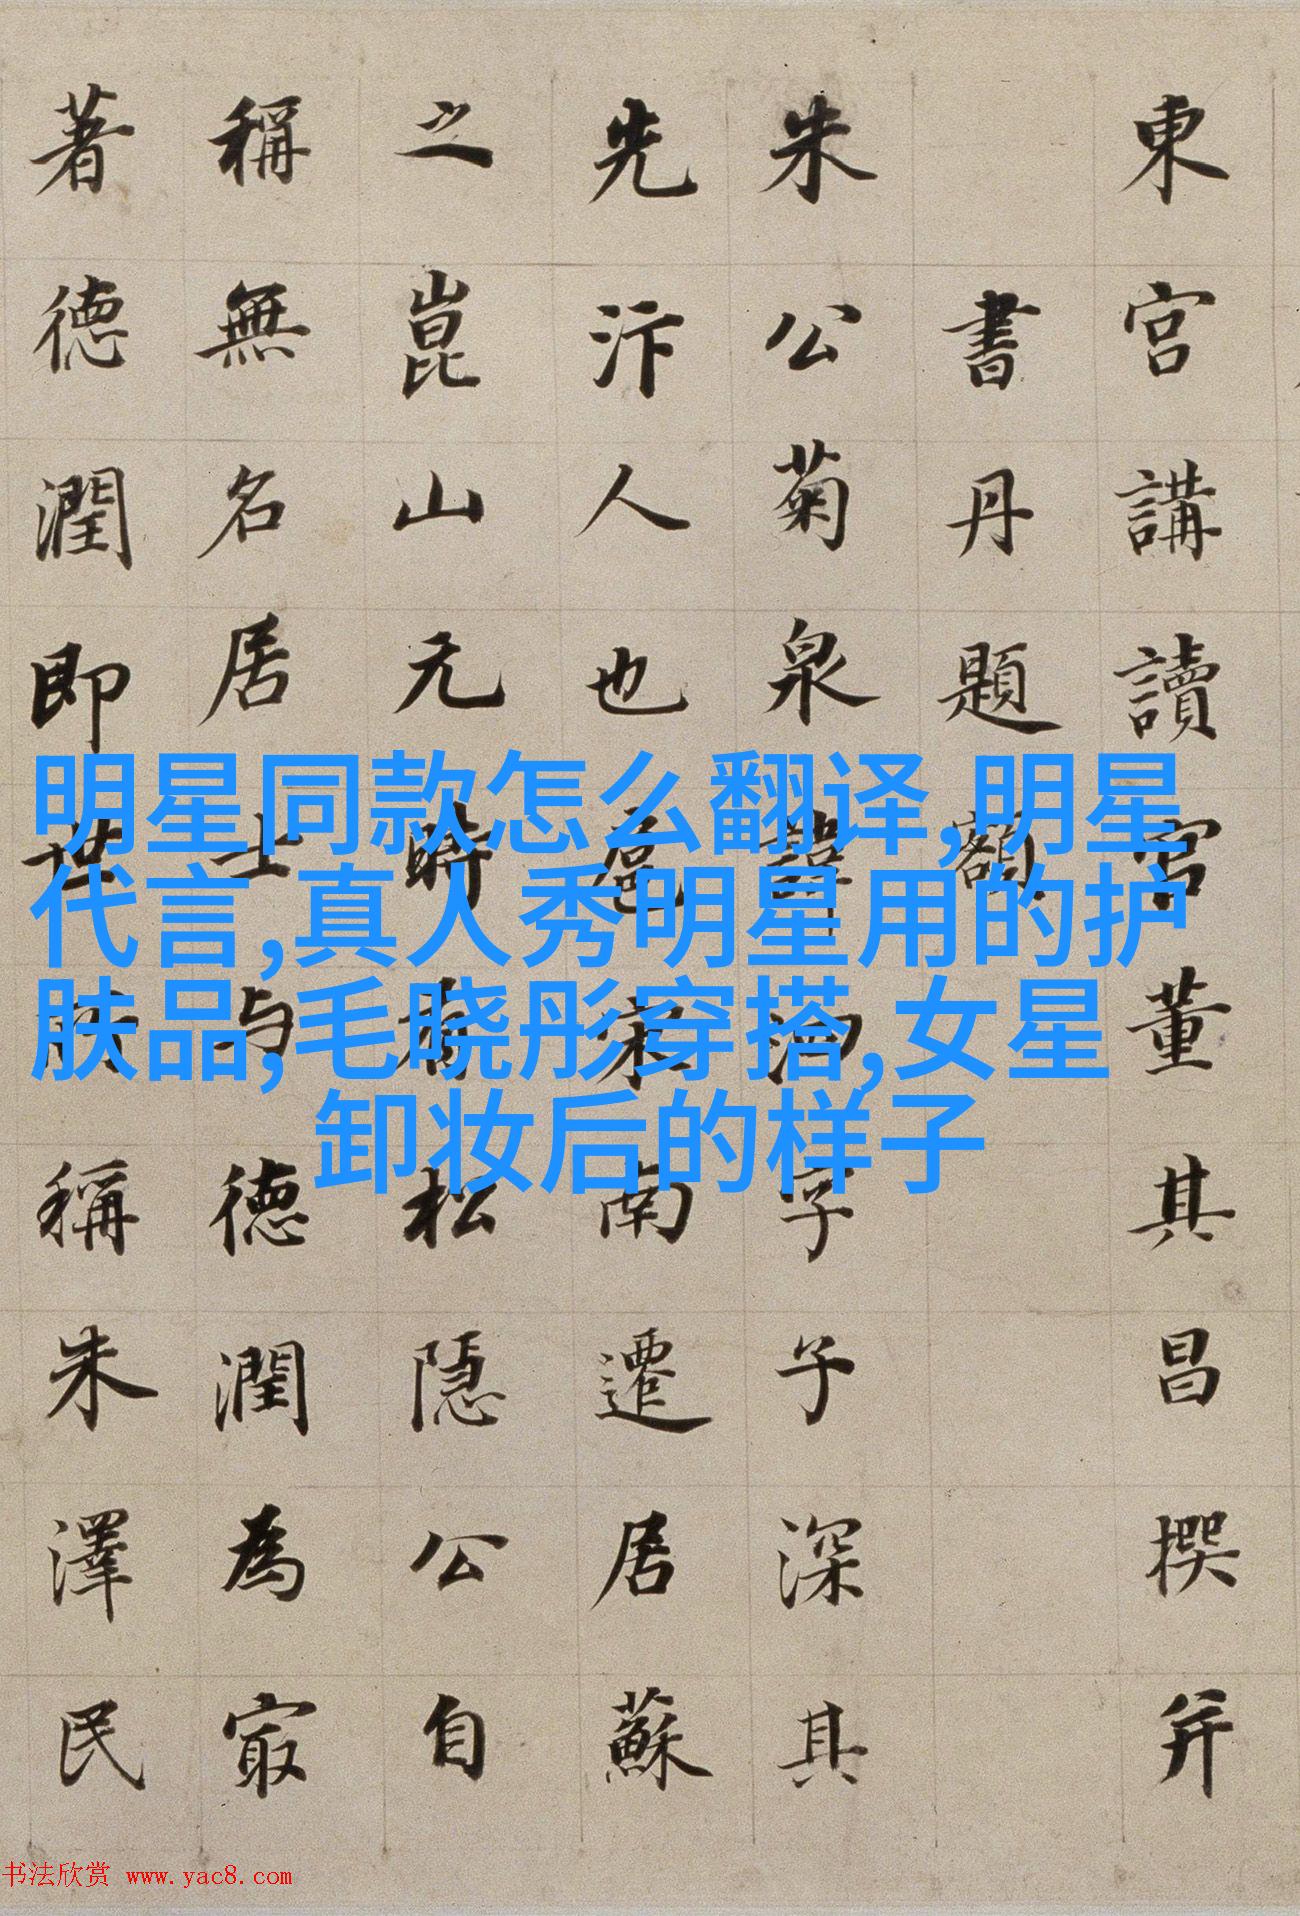 東宮講讀官董其昌撰并
書丹題額
朱公菊泉諱泗字子深其
先汴人也扈宋南遷居蘇
之崑山元時有松隱公自
稱無名居士与德潤為㝡
著德潤即世所稱朱澤民
明星同款怎么翻译,明星
代言,真人秀明星用的护
肤品,毛晓彤穿搭,女星
卸妆后的样子
书法欣赏 www.yac8.com